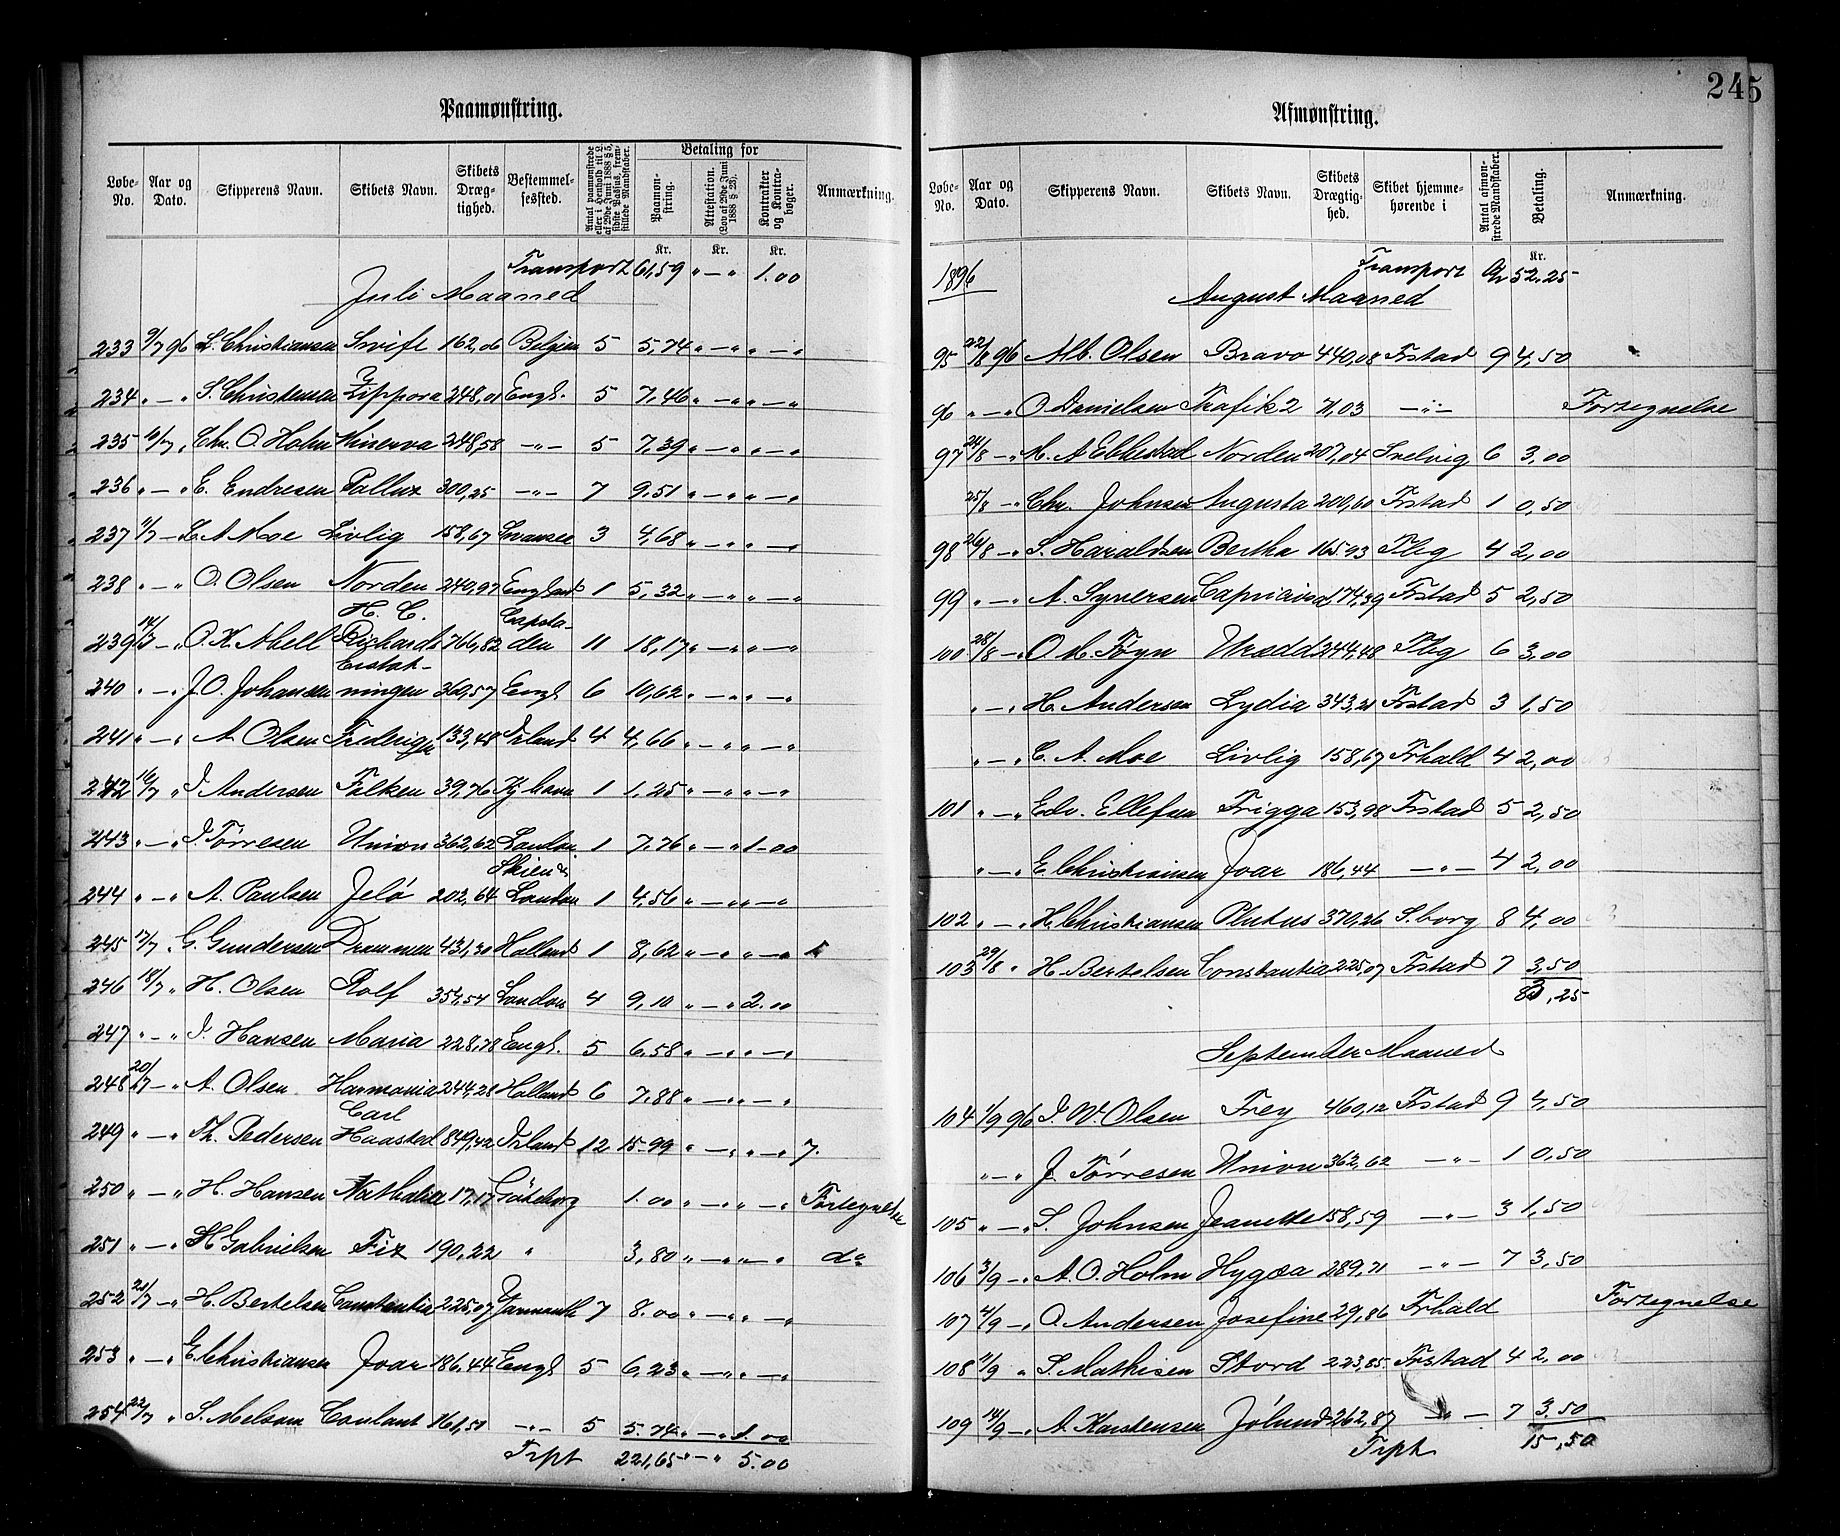 245
Paamønstring.
Løbe-No. Aar og Dato. Skipperens Navn. Skibets Navn. Skibets Dræg-tighed. Bestemmel-sessted. Antal paamønstrede eller i Henhold til L. af 29de Juni 1888 § 5, sidste Passus, frem-stillede Mandskaber. Betaling for Paamøn-string. Attestation. (Lov af 29de Juni 1888 § 23). Kontrakter og Kontra-bøger. Anmærkning.
Kr. Kr. Kr.
Transport 61,59 " — " 1.00
Juli Maaned
233 9/7 96 L. Christiansen Swift 162,06 Belgien 5 5,74 " — " " — "
234 " — " S. Christensen Zippora 248,01 Engl. 5 7,46 " — " " — "
235 10/7 " Chr. O Holm Minerva 248,58 — " — 5 7,39 " — " " — "
236 " — " E. Endresen Pollux 300,25 — " — 7 9,51 " — " " — "
237 11/7 — " A Moe Livlig 158,67 Swansea 3 4,68 " — " " — "
238 " — " O. Olsen Norden 240,97 England 1 5,32 " — " " — "
239 14/7 — " O. K. Abell H. C. Richards 766,82 Capsta-den 11 18,17 " — " " — "
240 " — " J. O. Johansen Erstat-ningen 369,57 Engl 6 10,62 " — " " — "
241 " — " A. Olsen 133,48 Irland 4 4,66 " — " " — "
242 16/7 " J Andersen Falken 39,76 Kjhavn 1 1,25 " — " " — "
243 " — " J. Tørresen Union 362,62 London 1 7,76 " — " 1-00
244 " — " A. Paulsen Jelö 202,64 Skien & London 1 4,56 " — " " — "
245 17/7 " G. Gundersen Drammen 431,30 Holland 1 8,62 " — " " — "
246 18/7 " H. Olsen Rolf 354,54 London 4 9,10 " — " 2.00
247 " — " J. Hansen Maria 228,78 Engl. 5 6,58 " — " " — "
248 20/7 — " A. Olsen Harmonia 244,28 Holland 6 7,88 " — " " — "
249 " — " Th. Pedersen Carl Haasted 849,42 Irland 12 15-99 " — " " — " 7.
250 " — " H. Hansen Nathalia 17,17 Göteborg 1.00 " — " " — " Fortegnelse
251 " — " H Gabrielsen Fix 190,22 " 3,80 " — " " — " do
252 21/7 — " H. Bertelsen Constantia 225,07 Yarmouth 7 8.00 " — " " — "
253 " — " E. Christiansen Joar 186,44 Engl 5 6,23 " — " " — "
254 22/7 " S. Melsom Coulant 161,51 — " — 5 5.74 " — " 1.00
Trpt 221,65 " — " 5.00
Afmønstring.
Løbe-No. Aar og Dato. Skipperens Navn. Skibets Navn. Skibets Drægtig-hed. Skibet hjemme-hørende i Antal afmøn-strede Mandskaber. Betaling. Anmærkning.
Kr.
1896 Transport 52.25
August Maaned
95 22/8 96 Alb. Olsen Bravo 440,08 Frstad 9 4,50
96 " — " O. Danielsen Trafik 2 71,03 — " — Fortegnelse
97 24/8 — " M. A Ebbestad Norden 207,04 Svelvig 6 3,00
25/8 — " Chr. Johnsen Augusta 200,60 Frstad 1 0,50
98 26/8 — " S. Haraldsen Bertha 165,93 Tbg 4 2,00
99 " — " A. Syversen 174,39 Frstad 5 2,50
100 28/8 — " O M. Føyn Urædd 244,48 Tbg 6 3,00
" — " H. Andersen Lydia 343,21 Frstad 3 1,50
" — " C. A. Moe Livlig 158,67 Frhald 4 2,00
101 " — " Edv. Ellefsen Frigga 153,98 Frstad 5 2,50
" — " E Christiansen Joar 186,44 — " — 4 2,00
102 " — " H. Christiansen Plutus 370,26 S.borg 8 4,00
103 29/8 " H. Bertelsen Constantia 225,07 Frstad 7 3,50
83,25
September Maaned
104 1/9 96 J. W. Olsen Frey 460,12 Frstad 9 4,50
" — " J. Tørresen Union 362,62 — " — 1 0,50
105 " — " S. Johnsen Jeanette 158,59 — " — 3 1,50
106 3/9 — " A. O. Holm Hygæa 289,71 — " — 7 3,50
107 4/9 — " O. Andersen Josefine 29,86 Frhald Fortegnelse
108 11/9 " S. Mathisen Stord 223,85 Frstad 4 2,00
109 14/9 — " A. Karstensen Jølund 262,87 — " — 7 3.50
Trpt 15,50